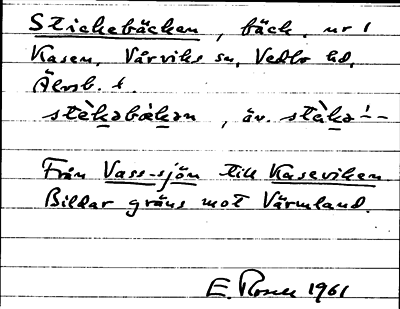 Stickebäcken, bäck, nr 1
Kasen, Vårviks sn, Vedbo hd,
Älvsb. l.
stèkəbækən, äv. stèkə!--
Från Vass-sjön till Kaseviken
Bildar gräns mot Värmland.
E. Rosell 1961